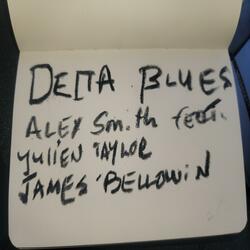 DELTA BLUES
ALEX Smith feat.
YULIEN TAYLOR
JAMES BELLOWIN